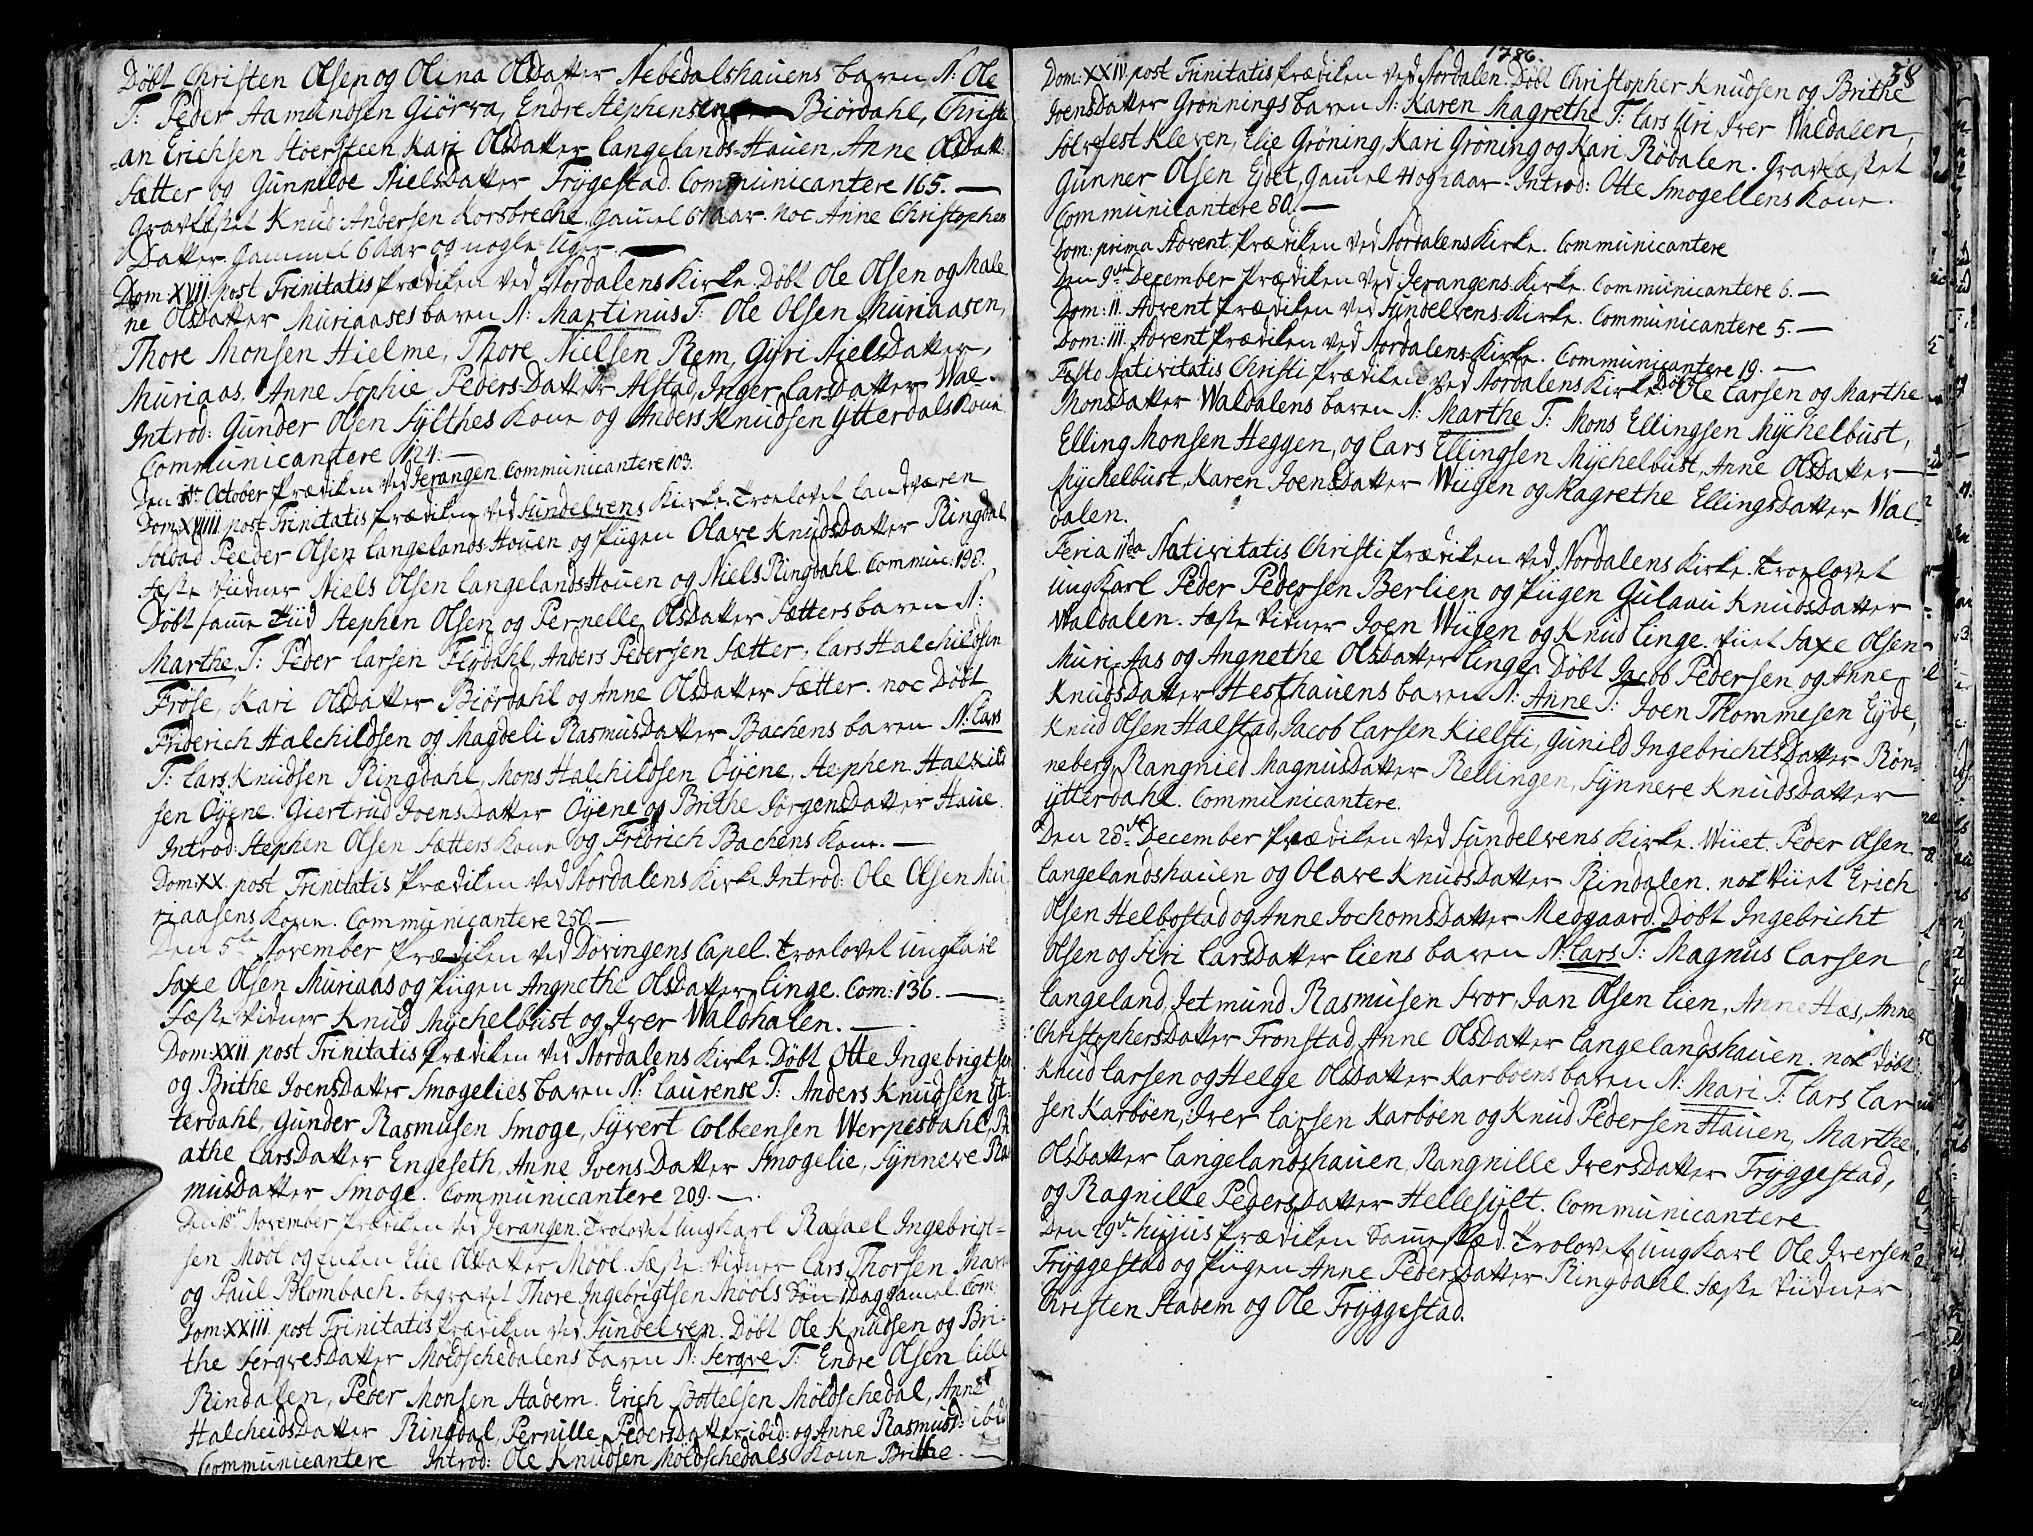 Döbt Christen Olsen og Olina Olsdatter Nebedalshauens barn N: Ole
T: Peder Aamundsen Giörva, Endre Stephensen Biördahl, Christi
-an Erichsen Stoersteen Kari Olsdatter Langelands-Hauen, Anne Olsdatt:
Sætter og Gunnilde Nielsdatter Frÿgestad. Communicantere 165. —
Gravfæstet Knud Andersen Korsbreche, gamel 61 aar. noc Anne Christophers
Datter gammel 6 Aar og nogle Uger. —
Dom: XVII post Trinitatis Prædiken ved Nordalens Kirke. Döbt Ole Olsen og Male
ne Olsdatter Muriaases barn N: Martinus T: Ole Olsen Muriaasen,
Thore Monsen Hielme, Thore Nielsen Rem, Gÿri Nielsdatter,
Muriaas. Anne Sophie PedersDatter Alstad, Inger Larsdatter Wal-
Introd: Gunder Olsen Sÿlthes Kone og Anders Knudsen Ÿtterdals Kone
Communicantere 124. —
Den 1st October Prædiken ved Jerangen Communicantere 103.
Dom: XVIIII post Trinitatis Prædiken ved Sundelvens Kirke. Troelovet Landværn
Soldad Peeder Olsen Langelands-Houen og Pigen Olave Knudsdatter Ringdal
Fæste Vidner Niels Olsen Langelands Houen og Niels Ringdahl. Commun: 198.
Döbt samme Tiid Stephen Olsen og Pernelle Olsdatter Sætters barn N:
Marthe, T: Peder Larsen Flÿdahl, Anders Pedersen Sætter, Lars Halchildsen
Fröse, Kari Olsdatter Biördahl og Anne Olsdatter Sætter. noc Döbt
Friderich Halchildsen og Magdeli Rasmusdatter Bachens barn N: Lars
T: Lars Knudsen Ringdahl, Mons Halchildsen Öÿene, Stephen Halkild
sen Öÿene. Giertrud Joensdatter Öÿene og Brithe Jörgensdatter Haue.
Introd: Stephen Olsen Sætters Kone og Fredrich Bachens Kone. —
Dom: XX. post Trinitatis Prædiken ved Nordalens Kirke. Introd: Ole Olsen Mu
riaasens Kone. Communicantere 250 —
Den 5te November Prædiken ved Dövingens Capel. Troelovet Ungkarl
Saxe Olsen Muriaas og Pigen Angnethe Olsdatter Linge. Com: 136. —
Fæste Vidner Knud Mÿchelbust og Iver Waldhalen. —
Dom: XXII. post Trinitatis Prædiken ved Nordalens Kirke. Döbt Otte Ingebrigtsen
og Brithe Joensdatter Smogelies barn N: Laurense T: Anders Knudsen Ÿt-
terdahl, Gunder Rasmusen Smoge, Sÿvert Colbeensen Werpesdahl,
athe LarsDatter Engeseth, Anne JoensDatter Smogelie, Sÿnneve Ra
musdatter Smoge. Communicantere 209. —
Den November Prædiken ved Jerangen. Trolovet Ungkarl Rafael Ingebrigt-
sen Mööl og Enken Elie Olsdatter Mööl. Fæste Vidner Lars Thorsen
og Paul Blombach. begravet Thore Ingebrigtsen Mööls Sön 1 Dag gamel Com:
Dom XXIII. post Trinitatis Prædiken ved Sundelven. Döbt Ole Knudsen og Bri-
the Sergvesdatter Möldschedalens barn N: Sergve T: Endre Olsen Lille
Rindalen, Peder Monsen Stadem. Erich Bottelsen Möldschedal, Anne
Halcheidsdatter Ringdal, Pernille Pedersdatter ibid: og Anne Rasmusd: ibid
Communicantere Introd: Ole Knudsen Möldschedals Kone Brithe. —
1786.
58
Dom: XXIV. post Trinitatis Prædiken ved Nordalen. Döbt Christopher Knudsen og Brithe
Joensdatter Grönnings barn N: Karen Magrethe T: Lars Uri, Iver Waldalen,
Sölvfest Kleven, Elie Gröning, Kari Gröning og Kari Rödalen. Gravfæstet
Gunner Olsen Eÿdet, Gamel 40 og aar. Introd: Otte Smogeliens Kone.
Communicantere 80. —
Dom: prima Advent. Prædiken ved Nordalens Kirke. Communicantere
Den 9de December Prædiken ved Jerangens Kirke. Communicantere 6. —
Dom: II. Advent Prædiken ved Sundelvens Kirke. Communicantere 5. —
Dom: III. Advent Prædiken ved Nordalens Kirke. Communicantere 19. —
Festo Nativitatis Christi Prædiken ved Nordalens Kirke. Döbt Ole Larsen og Marthe
Monsdatter Waldalens barn N: Marthe T: Mons Ellingsen Mÿchelbust,
Elling Monsen Heggen, og Lars Ellingsen Mÿchelbust, Anne Olsdatter
Mÿchelbust, Karen Joensdatter Wiigen og Magrethe Ellingsdatter Wal-
dalen.
Feria IIda Nativitatis Christi Prædiken ved Nordalens Kirke. Troelovet
Ungkarl Peder Pedersen Berlien og Pigen Gulaau Knudsdatter
Waldalen. Fæste Vidner Joen Wiigen og Knud Linge. Viiet Saxe Olsen
Muri-Aas og Angnethe Olsdatter Linge. Döbt Jacob Pedersen og Anne
Knudsdatter Hesthauens barn N: Anne T: Joen Thommesen Eÿde,
Knud Olsen Halstad, Jacob Larsen Kielsti, Gunild Ingebrichtsdatter Rön-
neberg Rangnied Magnusdatter Rellingen, Sÿnneve Knudsdatter
Ÿtterdahl. Communicantere.
Den 28de December Prædiken ved Sundelvens Kirke. Wiiet. Peder Olsen
Langelandshauen og Olave Knudsdatter Rindalen. nok Viiet Erich
Olsen Helbostad og Anne Jochomsdatter Medgaard. Döbt Ingebricht
Olsen og Siri Larsdatter Liens barn N: Lars T: Magnus Larsen
Langeland, Jetmund Rasmusen Fror, Jan Olsen Lien, Anne Hæs, Anne
Christophersdatter Fronstad, Anne Olsdatter Langelandshauen. nok Döbt
Knud Larsen og Helge Olsdatter Karböens barn N: Mari T: Lars Lar
sen Karböen, Iver Larsen Karböen og Knud Pedersen Hauen, Marthe
Olsdatter Langelandshauen, Rangnille Iversdatter Frÿggestad,
og Ragnille Pedersdatter Hellesÿlt. Communicantere.
Den 29de hujus Prædiken Samme Stæd. Trolovet Ungkarl Ole Iversen
Frÿggestad og Pigen Anne Pedersdatter Ringdahl. Fæste Vidner
Christen Stadem og Ole Frÿggestad.